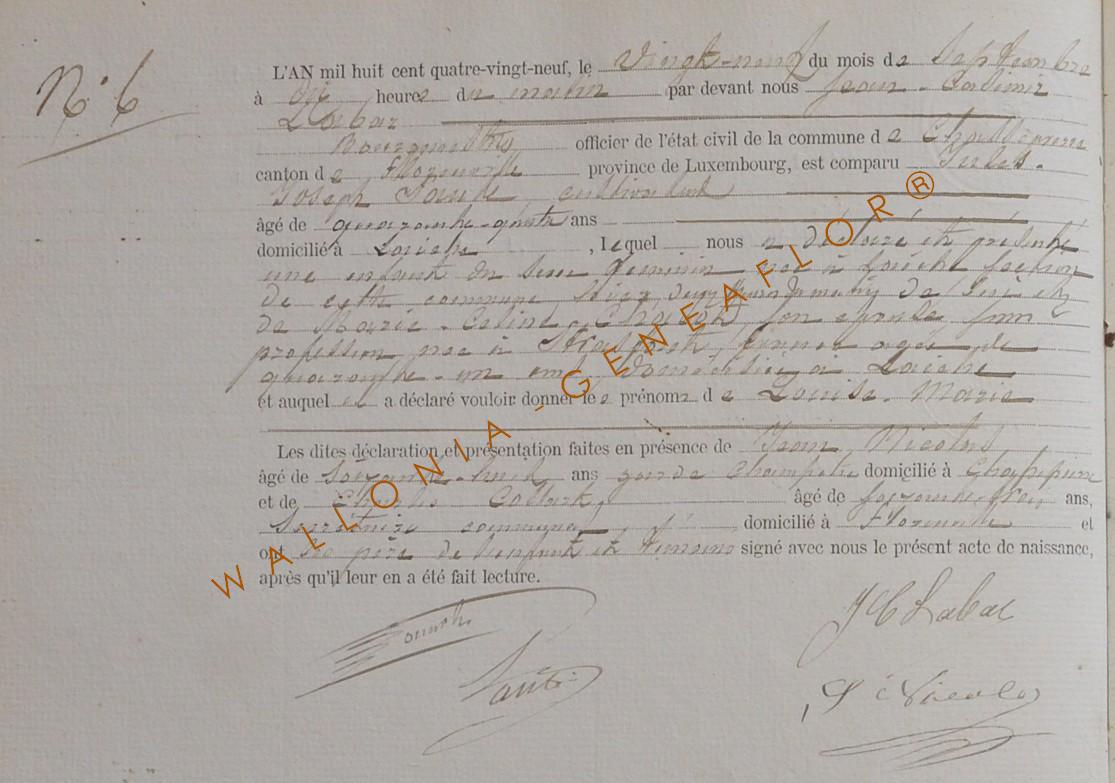 N° 6
L'AN mil huit cent quatre-vingt-neuf, le vingt-neuf du mois de Septembre
à heures du matin par devant nous Jean-Casimir
Labar
Bourgmestre officier de l'état civil de la commune de Chassepierre
canton de Florenville province de Luxembourg, est comparu Jules-
Joseph cultivateur
âgé de quarante-quatre ans
domicilié à Laiche, lequel nous a déclaré et présenté
une enfant du sexe féminin née à Laiche section
de cette commune hier, du matin, de lui et
de Marie-Celine son épouse sans
profession, née à âgée de
quarante-un ans, domiciliée à Laiche
et auquel il a déclaré vouloir donner les prénoms de Louise-Marie
Les dites déclaration et présentation faites en présence de Jean Nicolas
âgé de soixante-huit ans garde champêtre domicilié à Chassepierre
et de Charles âgé de soixante-trois ans,
Secrétaire communal, domicilié à Florenville et
ont les père de l'enfant et témoins signé avec nous le présent acte de naissance,
après qu'il leur en a été fait lecture.
J C Labar
Nicolas
WALLONIA-GENEAFLOR®